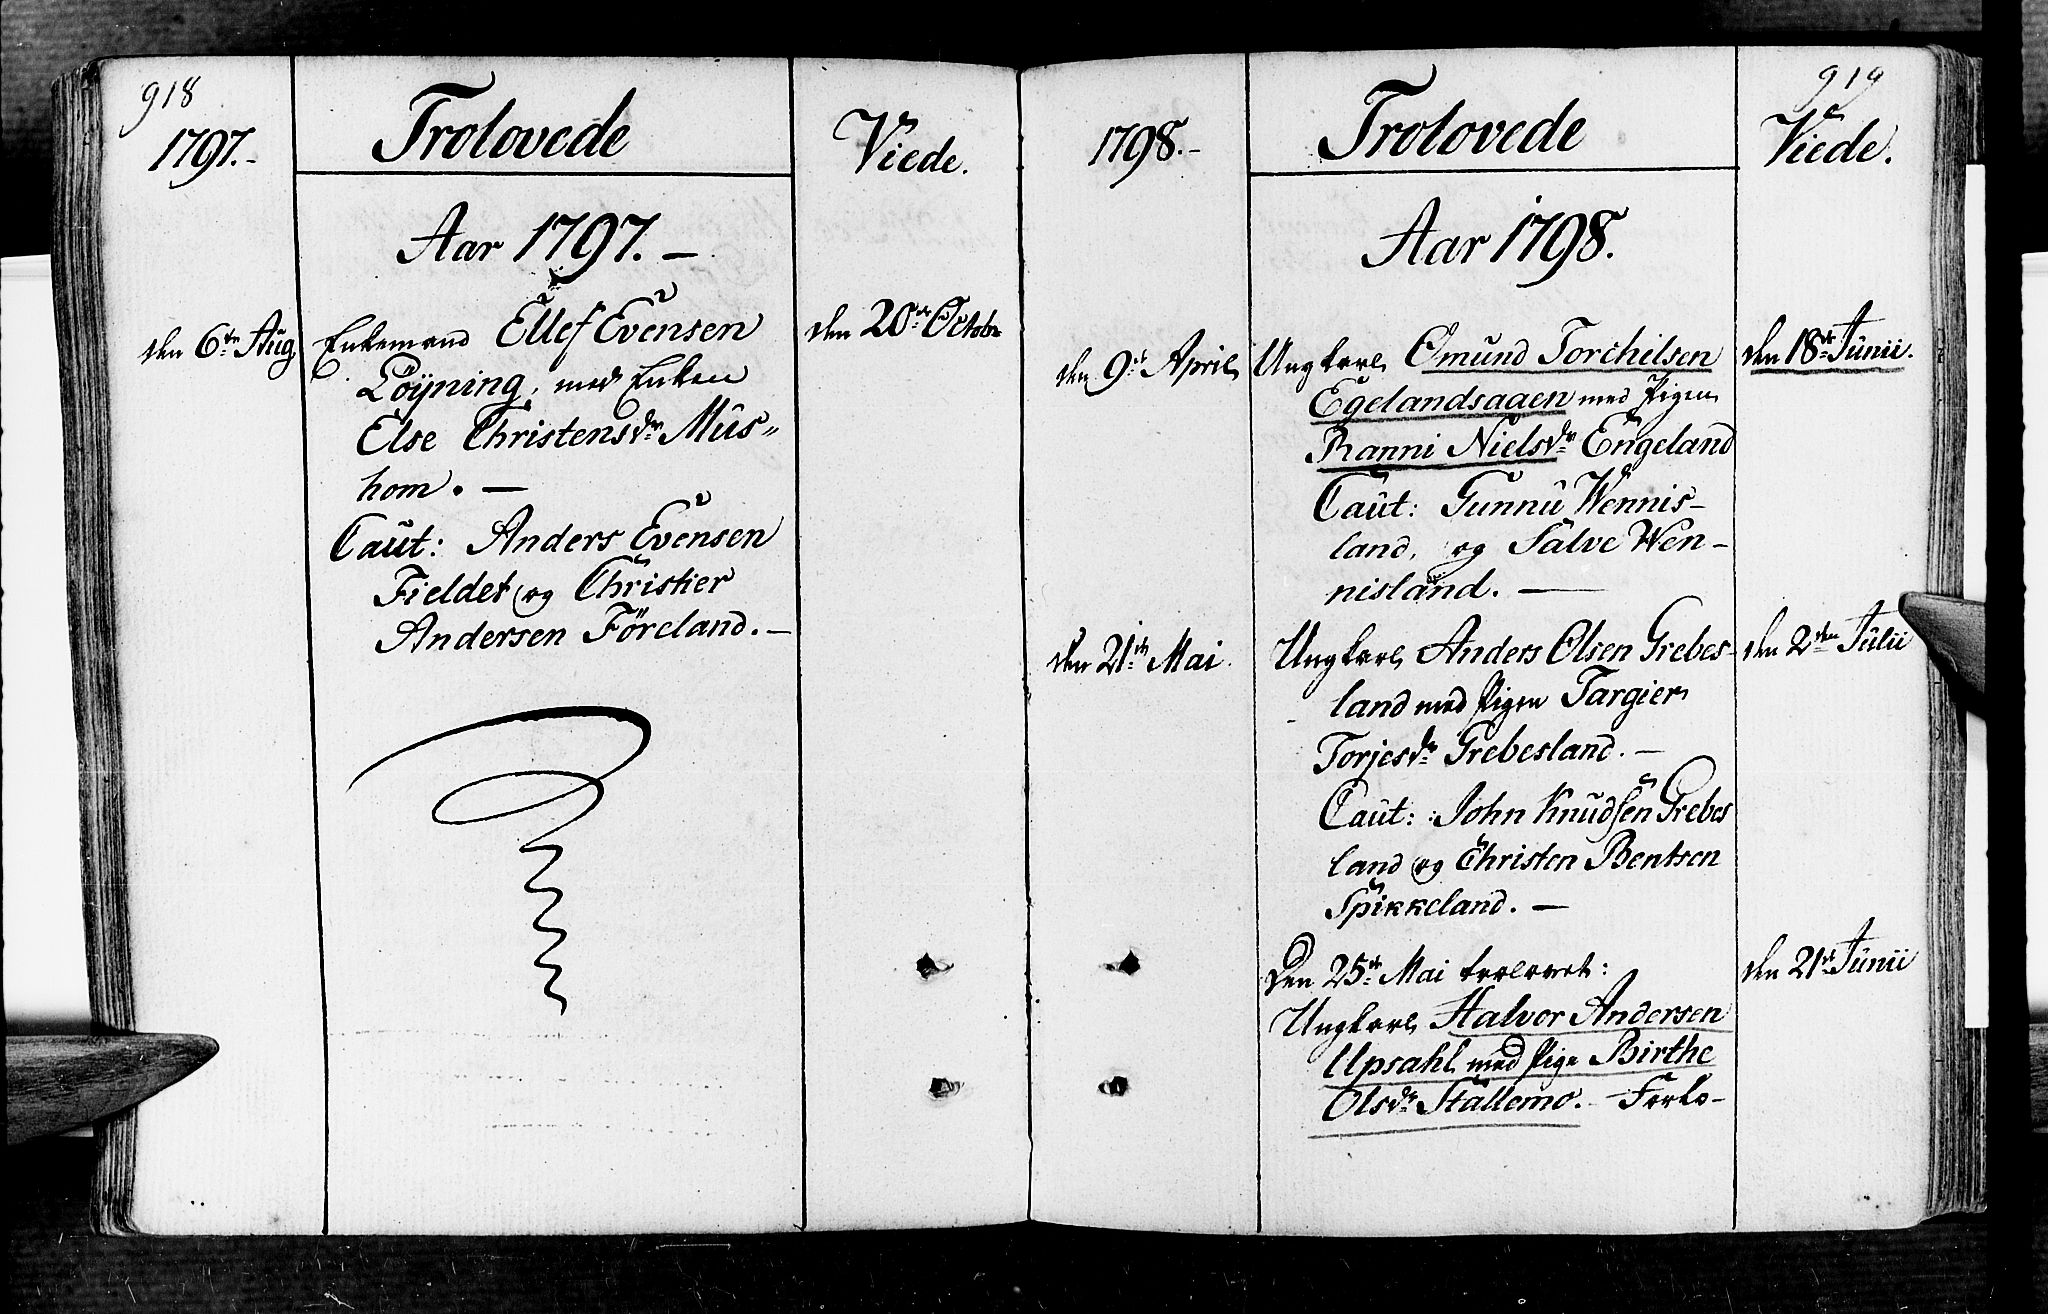 918
1797.-
Trolovede
Viede.
Aar 1797. –
den 6te Aug
Enkemand Ellef Evensen
Löyning, med Enken
Else Christensdr Mus„
hom. —
Caut: Anders Evensen
Fieldet og Christier
Andersen Föreland. –
den 20de Octobr
919
1798.-
Trolovede
Viede.
Aar 1798.
den 9de April
Ungkarl Omund Torchilsen
Egelandsaaen med Pigen
Ranni Nielsdr Engeland
Caut: Gunnu Wennis-
land, og Salve Wen-
nisland. —
den 18de Junii.
den 21de Mai.
Ungkarl Anders Olsen Grebes-
land med Pigen Targier
Torjesdr Grebesland. –
Caut: John Knudsen Grebes
land og Christen Bentsen
Spikkeland. —
den 2den Julii
Den 25de Mai trolovet:
Ungkarl Halvor Andersen
Upsahl med Pige Birthe
Olsdr Stallemo. – Forlo-
den 21de Junii